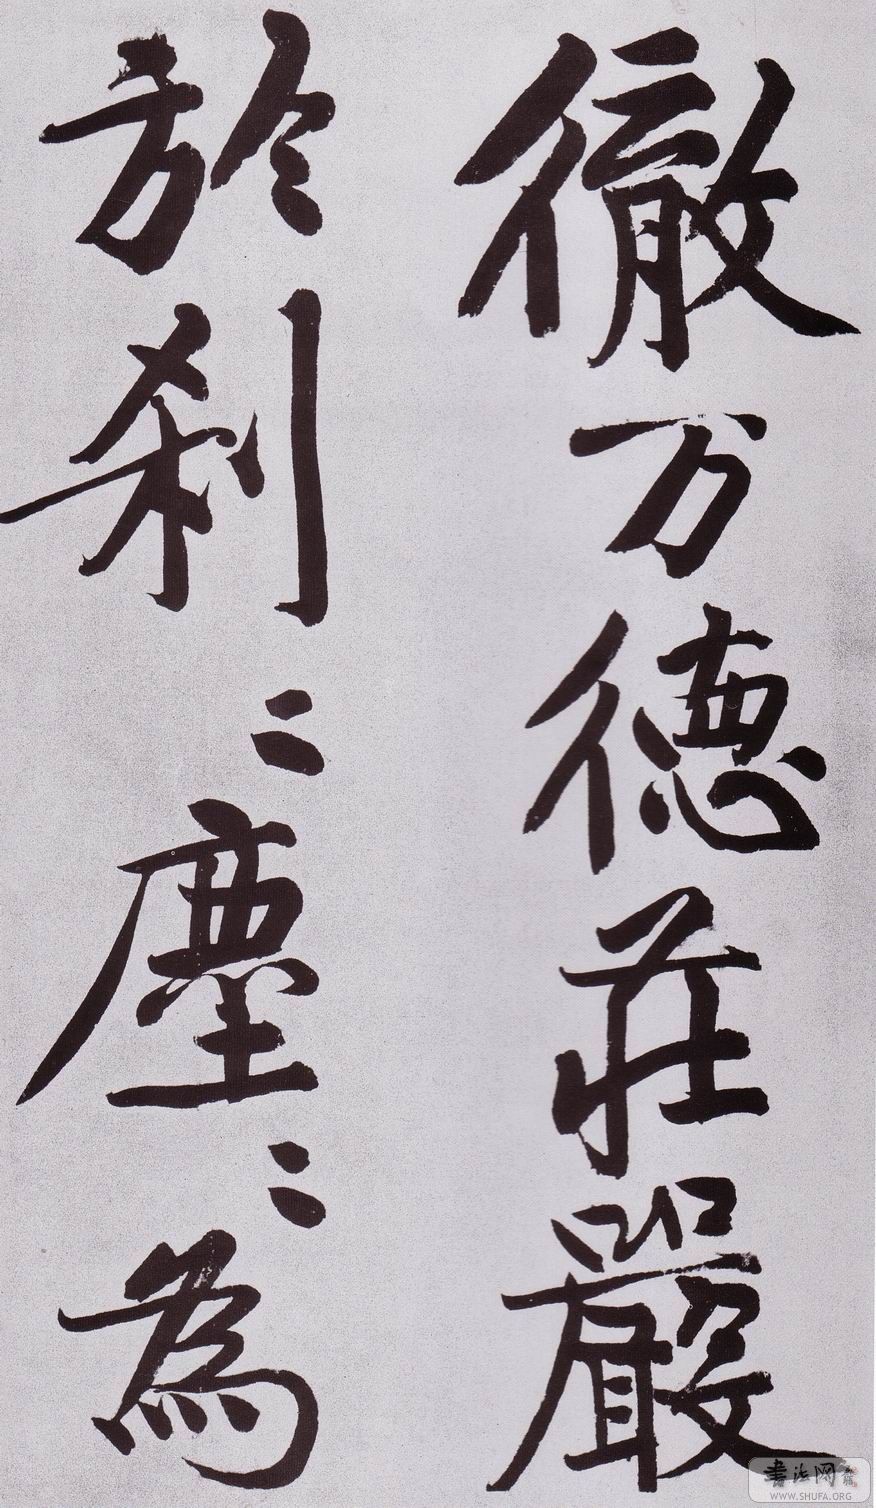 徹万德莊嚴
於刹〻塵〻為
書法网
WWW.SHUFA.ORG